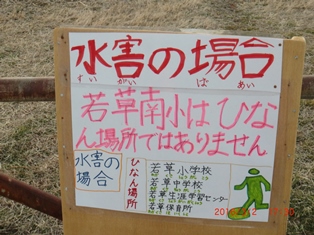 水害の場合
すい がい ば あい
若草南小はひな
ん場所ではありません
水害の
場合
ひなん場所
若草小学校
若草中学校
若草生涯学習センター
若草保育所